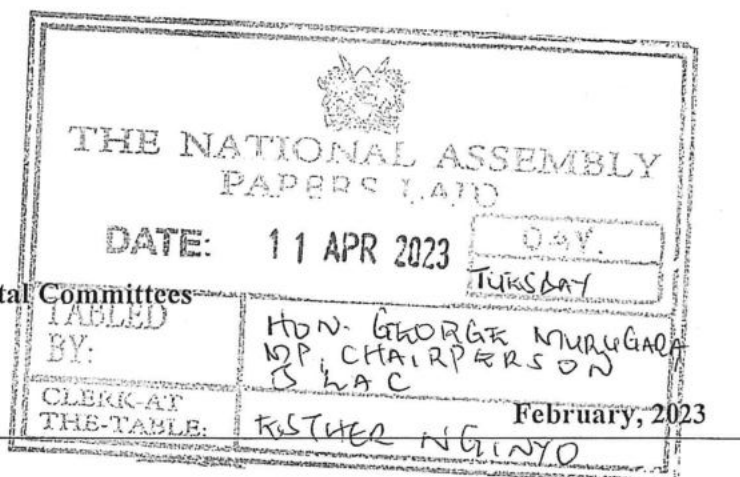 THE NATIONAL ASSEMBLY
PAPERS LAID
DATE: 11 APR 2023
DAY.
TUESDAY
tal Committees
TABLED
BY:
HON. GEORGE MURUGARA
MP, CHAIRPERSON
JLAC
CLERK-AT
THE-TABLE:
ESTHER NGINYO
February, 2023